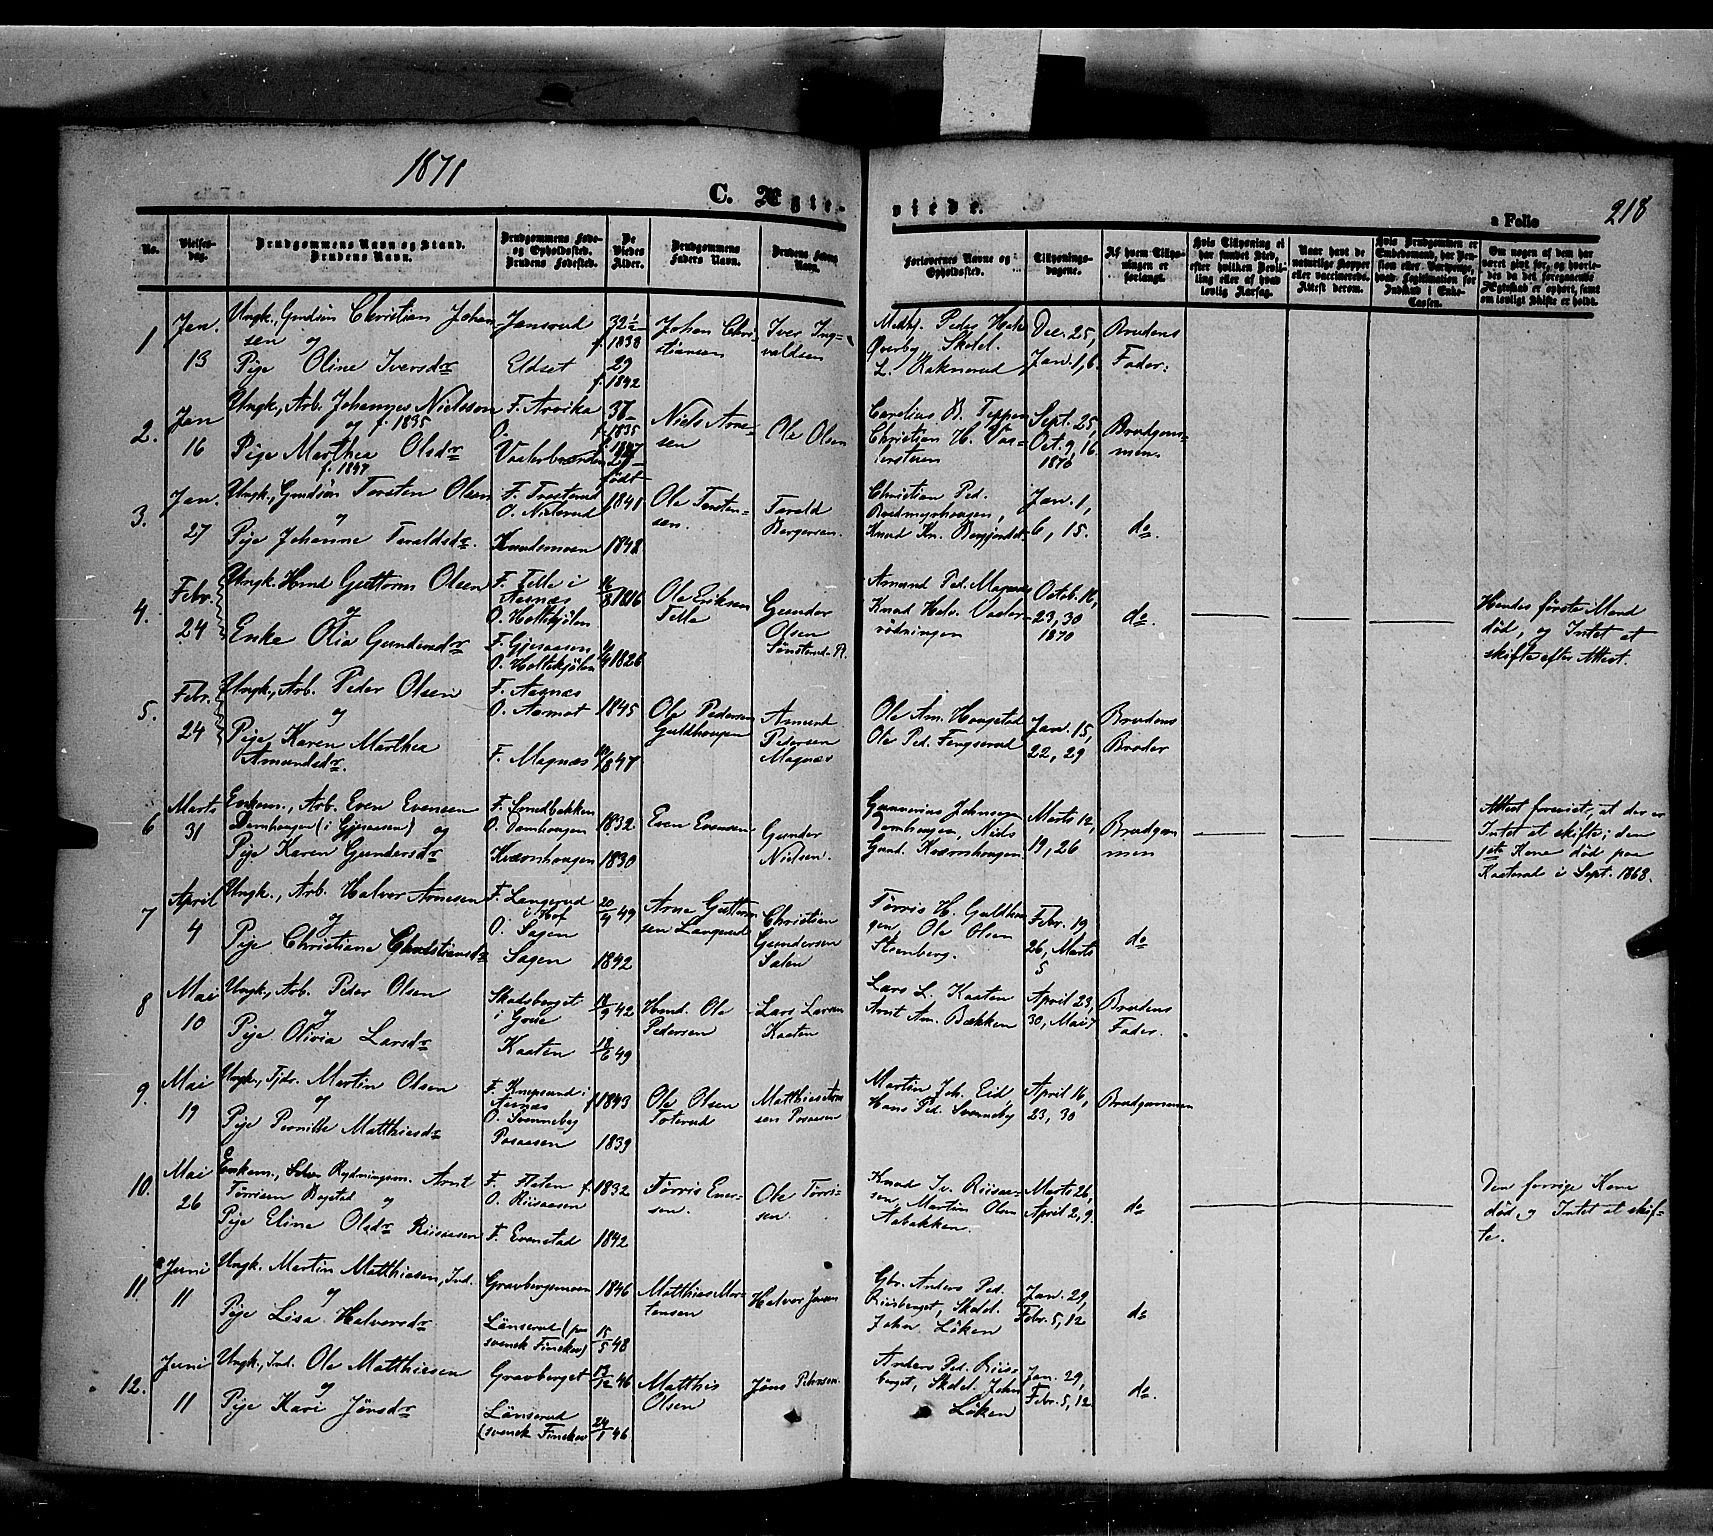 1871
C. Ægte-
viede.
a Folio
218
No.
Vielses-
dag.
Brudgommens Navn og Stand.
Brudens Navn.
Brudgommens Føde-
og Opholdssted.
Brudens Fødested.
De
Viedes
Alder.
Brudgommens
Faders Navn.
Brudens Faders
Navn.
Forlovernes Navne og
Opholdssted.
Tillysnings-
dagene.
Af hvem Tillys-
ningen er
forlangt.
Hvis Tillysning ei
har fundet Sted,
efter hvilken Bevil-
ling eller af hvad
lovlig Aarsag.
Naar havt de
naturlige Kopper
eller vaccinerede.
Attest derom.
Hvis Brudgommen er
Embedsmand, har Pen-
sion eller Vartpenge,
hvad Legitimation for
Indskud i Enke-
Cassen.
Om nogen af dem har
været gift før, og hvorle-
des da det foregaaende
Ægteskab er ophørt, samt
om lovligt Skifte er holdt.
1
Jan.
13
Ungk., Grdsøn Christian Johan
sen og
Pige Oline Iversdr
Jansrud
Eldset
32½
f. 1838
29
f. 1842
Johan Chri-
stiansen
Iver Ing-
valdsen
Peder
Øverby, Skolel.
L. Raknerud
Dec. 25,
Jan. 1, 6.
Brudens
Fader.
2.
Jan
16
Ungk., Arb. Johannes Nielsson
og f. 1835
Pige Marthea Olsdr
f. 1847
F. Arvika
O.
f. 1835
Niels Arne-
sen
Ole Olsen
Christian H. Vaa-
lersteren
Sept. 25,
Oct. 9, 16.
1870
Brudgom-
men.
3.
Jan.
27
Ungk., Grdsøn Torsten Olsen
og
Pige Johanne Taraldsdr.
F. Trosterud
O. Nisterud
Knudsmoen
født
1841
1848
Ole Torsten-
sen.
Tarald
Bergersen.
Christian Ped.
Bredmyrhaugen,
Knud Kn. Bergjordet
Jan. 1,
6, 15.
do.
4.
Febr.
24
Ungk. Hmd Guttorm Olsen
og
Enke Olia Gundersdr
F. Telle i
Aasnæs
O. Holtekjølen
F. Gjesaasen
O. Holtekjølen
1826
Ole Eriksen
Telle
Gunder
Olsen
Sønsterud-Pl.
Amund Ped. Magnæs
Knud Halv. Vaaler-
rødningen
Octob. 16,
23, 30
1870
do.
Hendes første Mand
død, og Intet at
skifte efter Attest.
5.
Febr.
24
Ungk., Arb. Peder Olsen
og
Pige Karen Marthea
Amundsdr.
F. Aasnæs
O. Aamot
F. Magnæs
1845
1847
Ole Pedersen
Guldhaugen
Amund
Pedersen
Magnæs
Ole Am. Haugstad
Ole Ped. Fengserud
Jan. 15,
22, 29
Brudens
Broder
6
Marts
31
Enkem., Arb. Even Evensen
Damhaugen (i Gjesaasen) og
Pige Karen Gundersdr
F. Smedbakken
O. Damhaugen
Kværnhaugen
1832
1830
Even Evensen
Gunder
Nielsen.
Gunnerius Johnsen
Damhaugen, Niels
Gund. Kværnhaugen
Marts 12,
19, 26
Brudgom
men
Attest foreviist, at der er
Intet at skifte; den
1ste Kone død paa
i Sept. 1868.
7
April
4
Ungk., Arb. Halvor Arnesen
og
Pige Christiane Christiansdr
F. Langerud
i Hof
O. Sagen
Sagen
20/4 49
1842
Arne Guttorm
sen Langerud
Christian
Gundersen
Solien
Tørris H. Guldhau
gen, Ole Olsen
Steenberg.
Febr. 19
26, Marts
5
do
8
Mai
10
Ungk., Arb. Peder Olsen
og
Pige Olivia Larsdr
Skadsberget
i Grue
Kaaten
18/9 42
18/6 49
Hmd. Ole
Pedersen
Lars Larsen
Kaaten
Lars L. Kaaten
Arnt Am. Bækken
April 23,
30, Mai 7
Brudens
Fader.
9.
Mai
19
Ungk., Tjdr. Martin Olsen
og
Pige Pernille Matthiasdr
F. Knapsund i
Aasnæs
O. Svenneby
Posaasen
f. 1843
1839
Ole Olsen
Toterud
Posaasen
Martin Joh. Eid,
Hans Ped. Svenneby
April 16,
23, 30
Brudgommen
10.
Mai
26
Enkem., Selv. Rydningsm. Arnt
Tørrisen Bogstad og
Pige Eline Olsdr Riisaasen
F. Floten
O. Riisaasen
F. Evenstad
f. 1832
1842
Tørris Ener-
sen.
Ole Tørri-
sen.
Knud Iv. Riisaa-
sen, Martin Olsen
Aabakken.
Marts 26,
April 2, 9.
do
Den forrige Kone
død og Intet at skif-
te.
11.
Juni
11
Ungk. Martin Matthiasen, Ind.
og
Pige Lisa Halvorsdr
Gravbergsmoen
Länserud (paa
svensk Finskov)
1846
15/5 48
Matthias Mor-
tensen
Halvor Jansen
Gbr. Anders Ped.
Riisberget, Skolel.
John Løken
Jan. 29,
Febr. 5, 12
do
12.
Juni
11
Ungk., Ind. Ole Matthiesen
og
Pige Kari Jönsdr
Gravberget
Länserud
(svensk Finskov
13/12 46
24/1 46
Matthis
Olsen
Jöns Pehrsen
Anders Ped. Riis-
berget, Skolel. John
Løken
Jan. 29,
Febr. 5, 12
do.